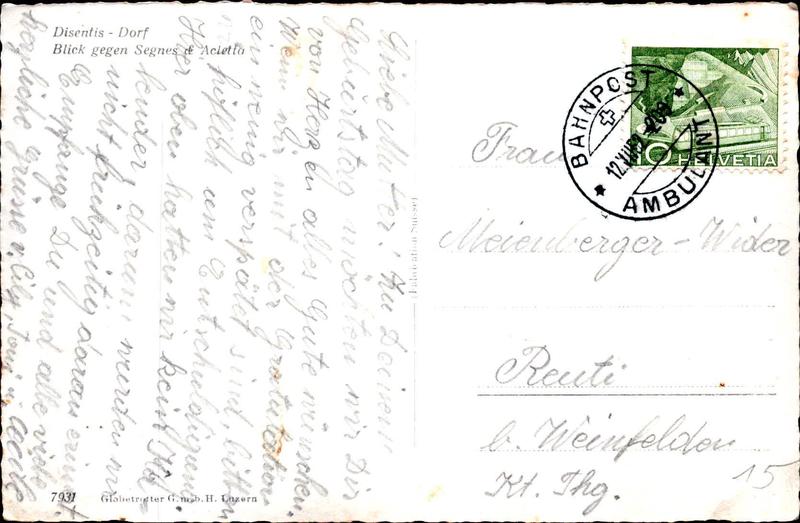 Disentis - Dorf
Blick gegen Segnes & Acletta
Liebe Mutter! Zu Deinem
Geburtstag möchten wir Dir
von Herzen alles Gute wünschen
Wenn wir mit der Gratulation
ein wenig verspätet sind, bitten
wir höflich um Entschuldigung
Hier oben hatten wir kein Ka-
lender, darum wurden wir
nicht frühzeitig daran erinnert
Empfange Du und alle viele
herzliche Grüsse v. Lily, Toni u.
7931
Globetrotter G.m.b.H. Luzern
(Fabrication Suisse)
BAHNPOST
AMBULANT
10 HELVETIA
Frau
Meienberger-Wider
Reuti
b. Weinfelden
Kt. Thg.
15